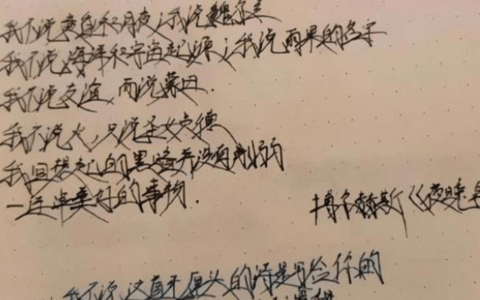 我不说黄昏和月亮；我说魏尔兰
我不说海洋和宇宙起源；我说雨果的名字
我不说友谊，而说蒙田．
我不说火，只说圣女贞德
我回想起的黑暗并没有削弱
一连串美好的事物．
博尔赫斯《夜晚
我不说这首头的诗是写给你的